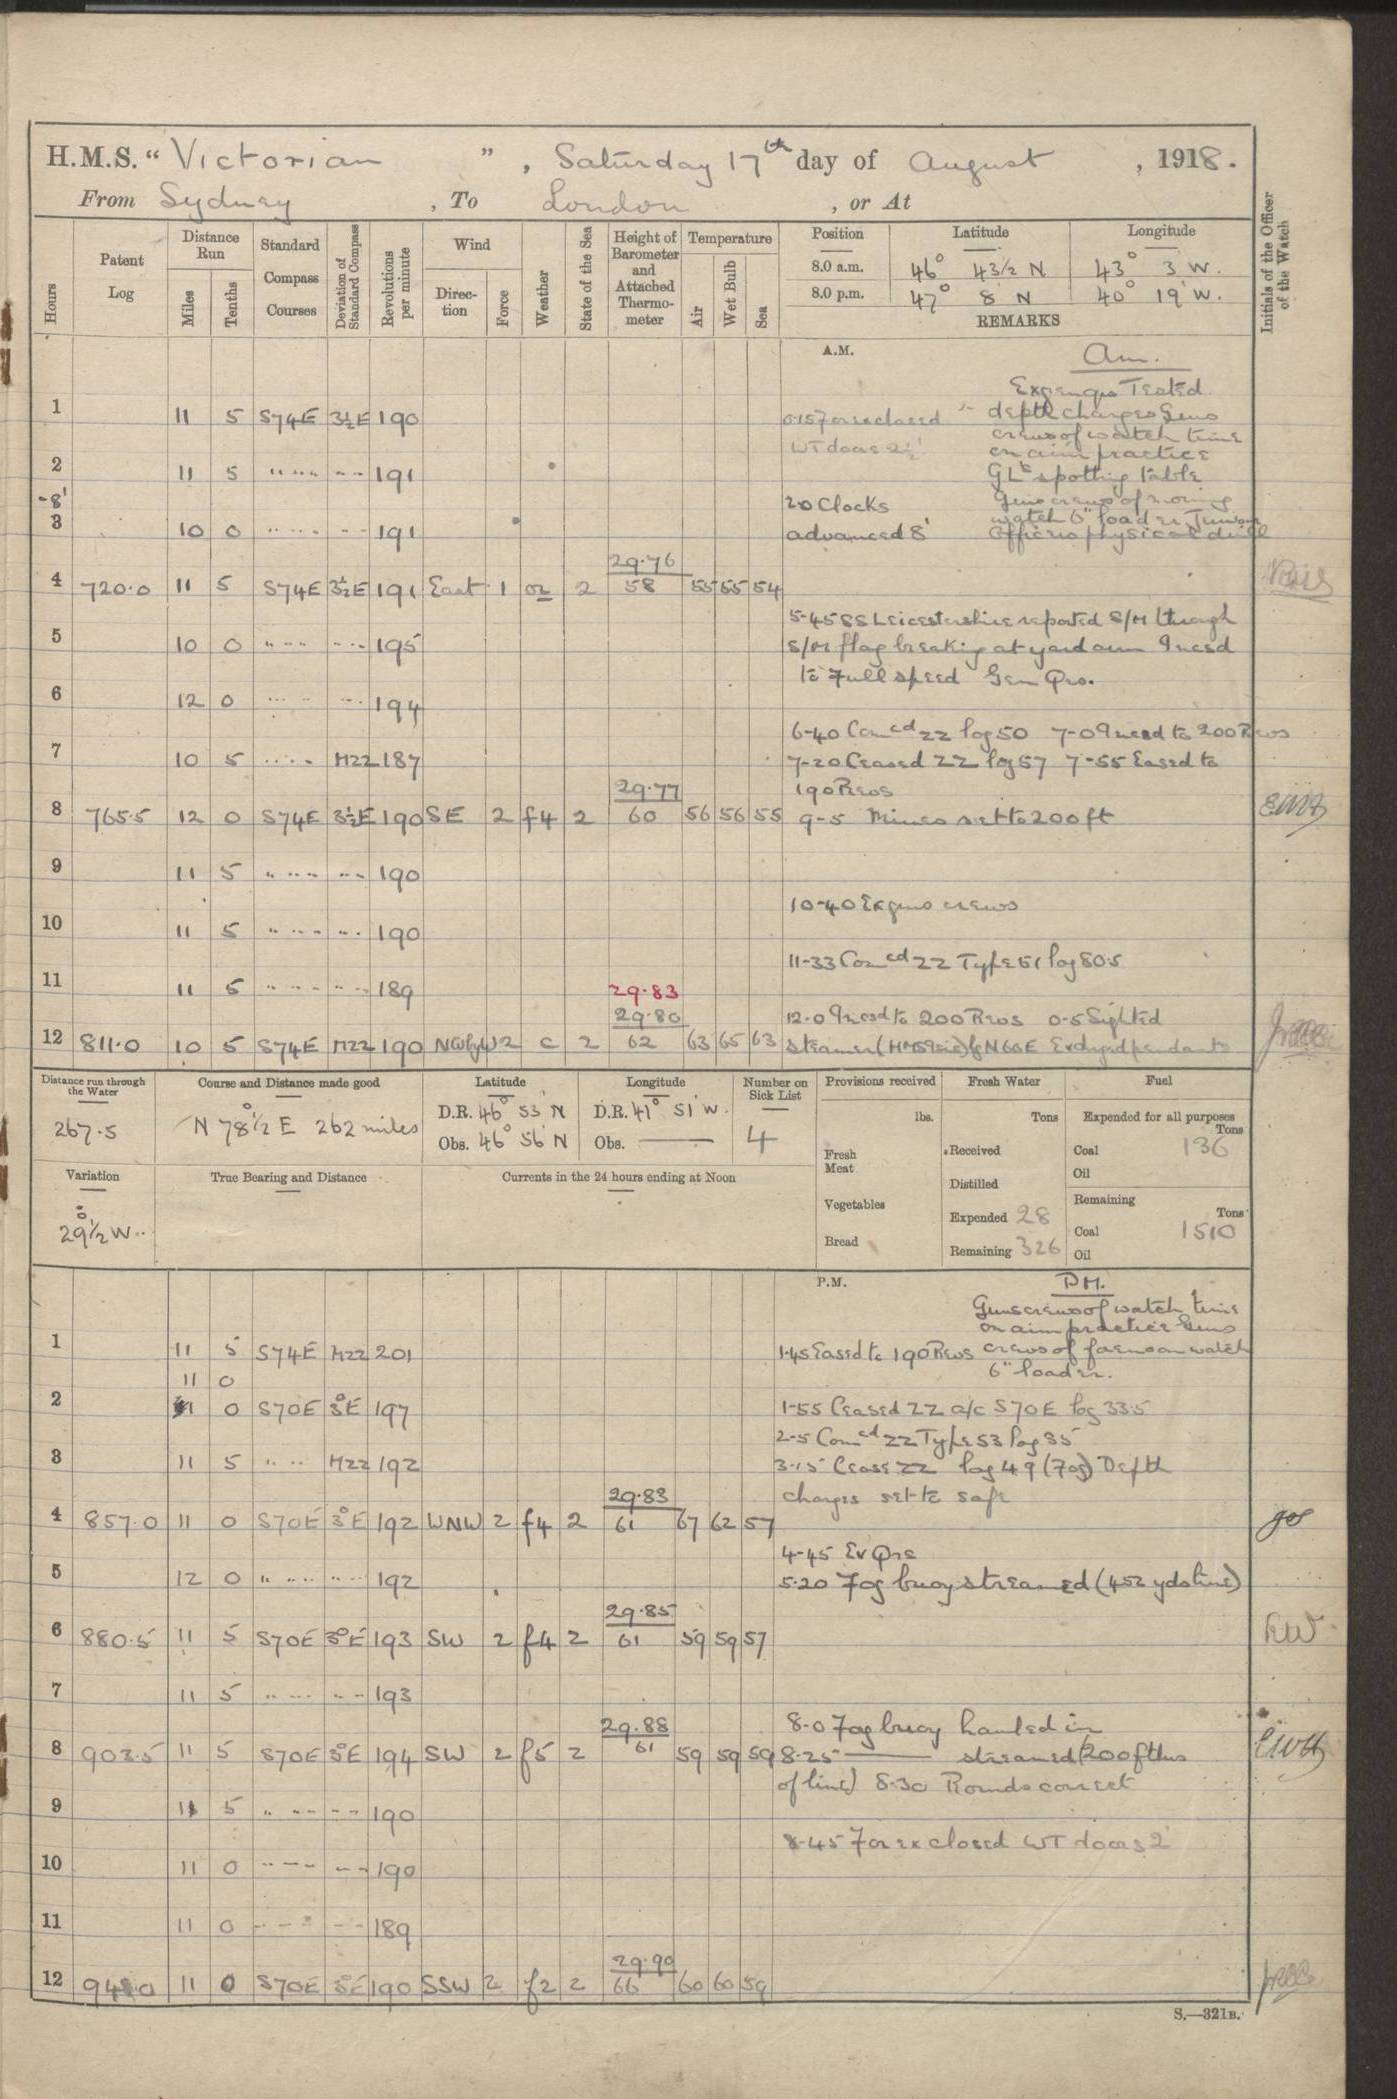 H.M.S. “ Victorian ” , Saturday 17th day of August , 1918.
From Sydney , To London , or At
Hours
Patent Log
Distance Run
Miles
Tenths
Standard Compass Courses
Deviation of Standard Compass
Revolutions per minute
Wind
Direction
Force
Weather
State of the Sea
Height of Barometer and Attached Thermometer
Temperature
Air
Wet Bulb
Sea
Position Latitude Longitude
8.0 a.m. 46° 43½ N 43° 3' W.
8.0 p.m. 47° 8 N 40° 19' W.
REMARKS
Initials of the Officer of the Watch
A.M. Am.
depth charges Guns
1 11 5 S74E 3½E 190 closed
crews of watch time
WT doors 2½' on aim practice
2 11 5 " " " " 191 GLs spotting table
-8' 2.0 Clocks Guns crews of morning
watch 6" loader Junior
3 10 0 " " " " 191 advanced 8' Officers physical drill
29.76
4 720.0 11 5 S74E 3½E 191 East 1 2 58 55 55 54
5.45 SS Leicestershire reported S/M through
5 10 0 " " " " 195 S/M flag breaking at yard arm Incsd
to Full speed Gen Qrs.
6 12 0 " " " " 194
6-40 Comcd ZZ log 50 7-0 Incsd to 200 Revs
7 10 5 " " MZZ 187 7-20 Ceased ZZ log 57 7-55 Eased to
29.77 190 Revs
8 765.5 12 0 S74E 3½E 190 SE 2 f4 2 60 56 56 55 9-5 Mines set to 200 ft
9 11 5 " " " " 190
10-40 Ex guns crews
10 11 5 " " " " 190
11-33 Comcd ZZ Type 51 log 80.5
11 11 5 " " " " 189 29.83
29.80 12.0 Incsd to 200 Revs 0-5 Sighted
12 811.0 10 5 S74E MZZ 190 NWbyW 2 c 2 62 63 65 63 Steamer N60E Exchgd pendants
Distance run through the Water
267.5
Course and Distance made good
N 78½° E 262 miles
Latitude
D.R. 46° 53' N
Obs. 46° 56' N
Longitude
D.R. 41° 51' W.
Obs. ———
Number on Sick List
4
Provisions received
lbs.
Fresh Meat
Vegetables
Bread
Fresh Water
Tons
Received
Distilled
Expended 28
Remaining 326
Fuel
Expended for all purposes
Tons
Coal 136
Oil
Remaining
Tons
Coal 1510
Oil
Variation
29½° W.
True Bearing and Distance
Currents in the 24 hours ending at Noon
P.M. P.M.
Guns crews of watch time
on aim practice Guns
1 11 5 S74E MZZ 201 1.45 Eased to 190 Revs crews of forenoon watch
11 0 6" loader.
2 0 S70E 3°E 197 1-55 Ceased ZZ a/c S70E log 33.5
2-5 Comcd ZZ Type 53 log 35
3 11 5 " " MZZ 192 3.15 Cease ZZ log 49 (Fog) Depth
29.83 charges set to safe
4 857.0 11 0 S70E 3°E 192 WNW 2 f4 2 61 67 62 57
4-45 Ev Qrs
5 12 0 " " " " 192 5.20 Fog buoy streamed (452 yds line)
29.85
6 880.5 11 5 S70E 3°E 193 SW 2 f4 2 61 59 59 57 EW
7 11 5 " " " " 193
29.88 8.0 Fog buoy hauled in
8 903.5 11 5 S70E 3°E 194 SW 2 f5 2 61 59 59 59 8.25 ——— streamed (200 fthms
of line) 8.30 Rounds correct
9 11 5 " " " " 190
8.45 closed WT doors 2'
10 11 0 " " " " 190
11 11 0 " " " " 189
29.90
12 11 0 S70E 3°E 190 SSW 2 f2 2 66 60 60 59
S.—321B.